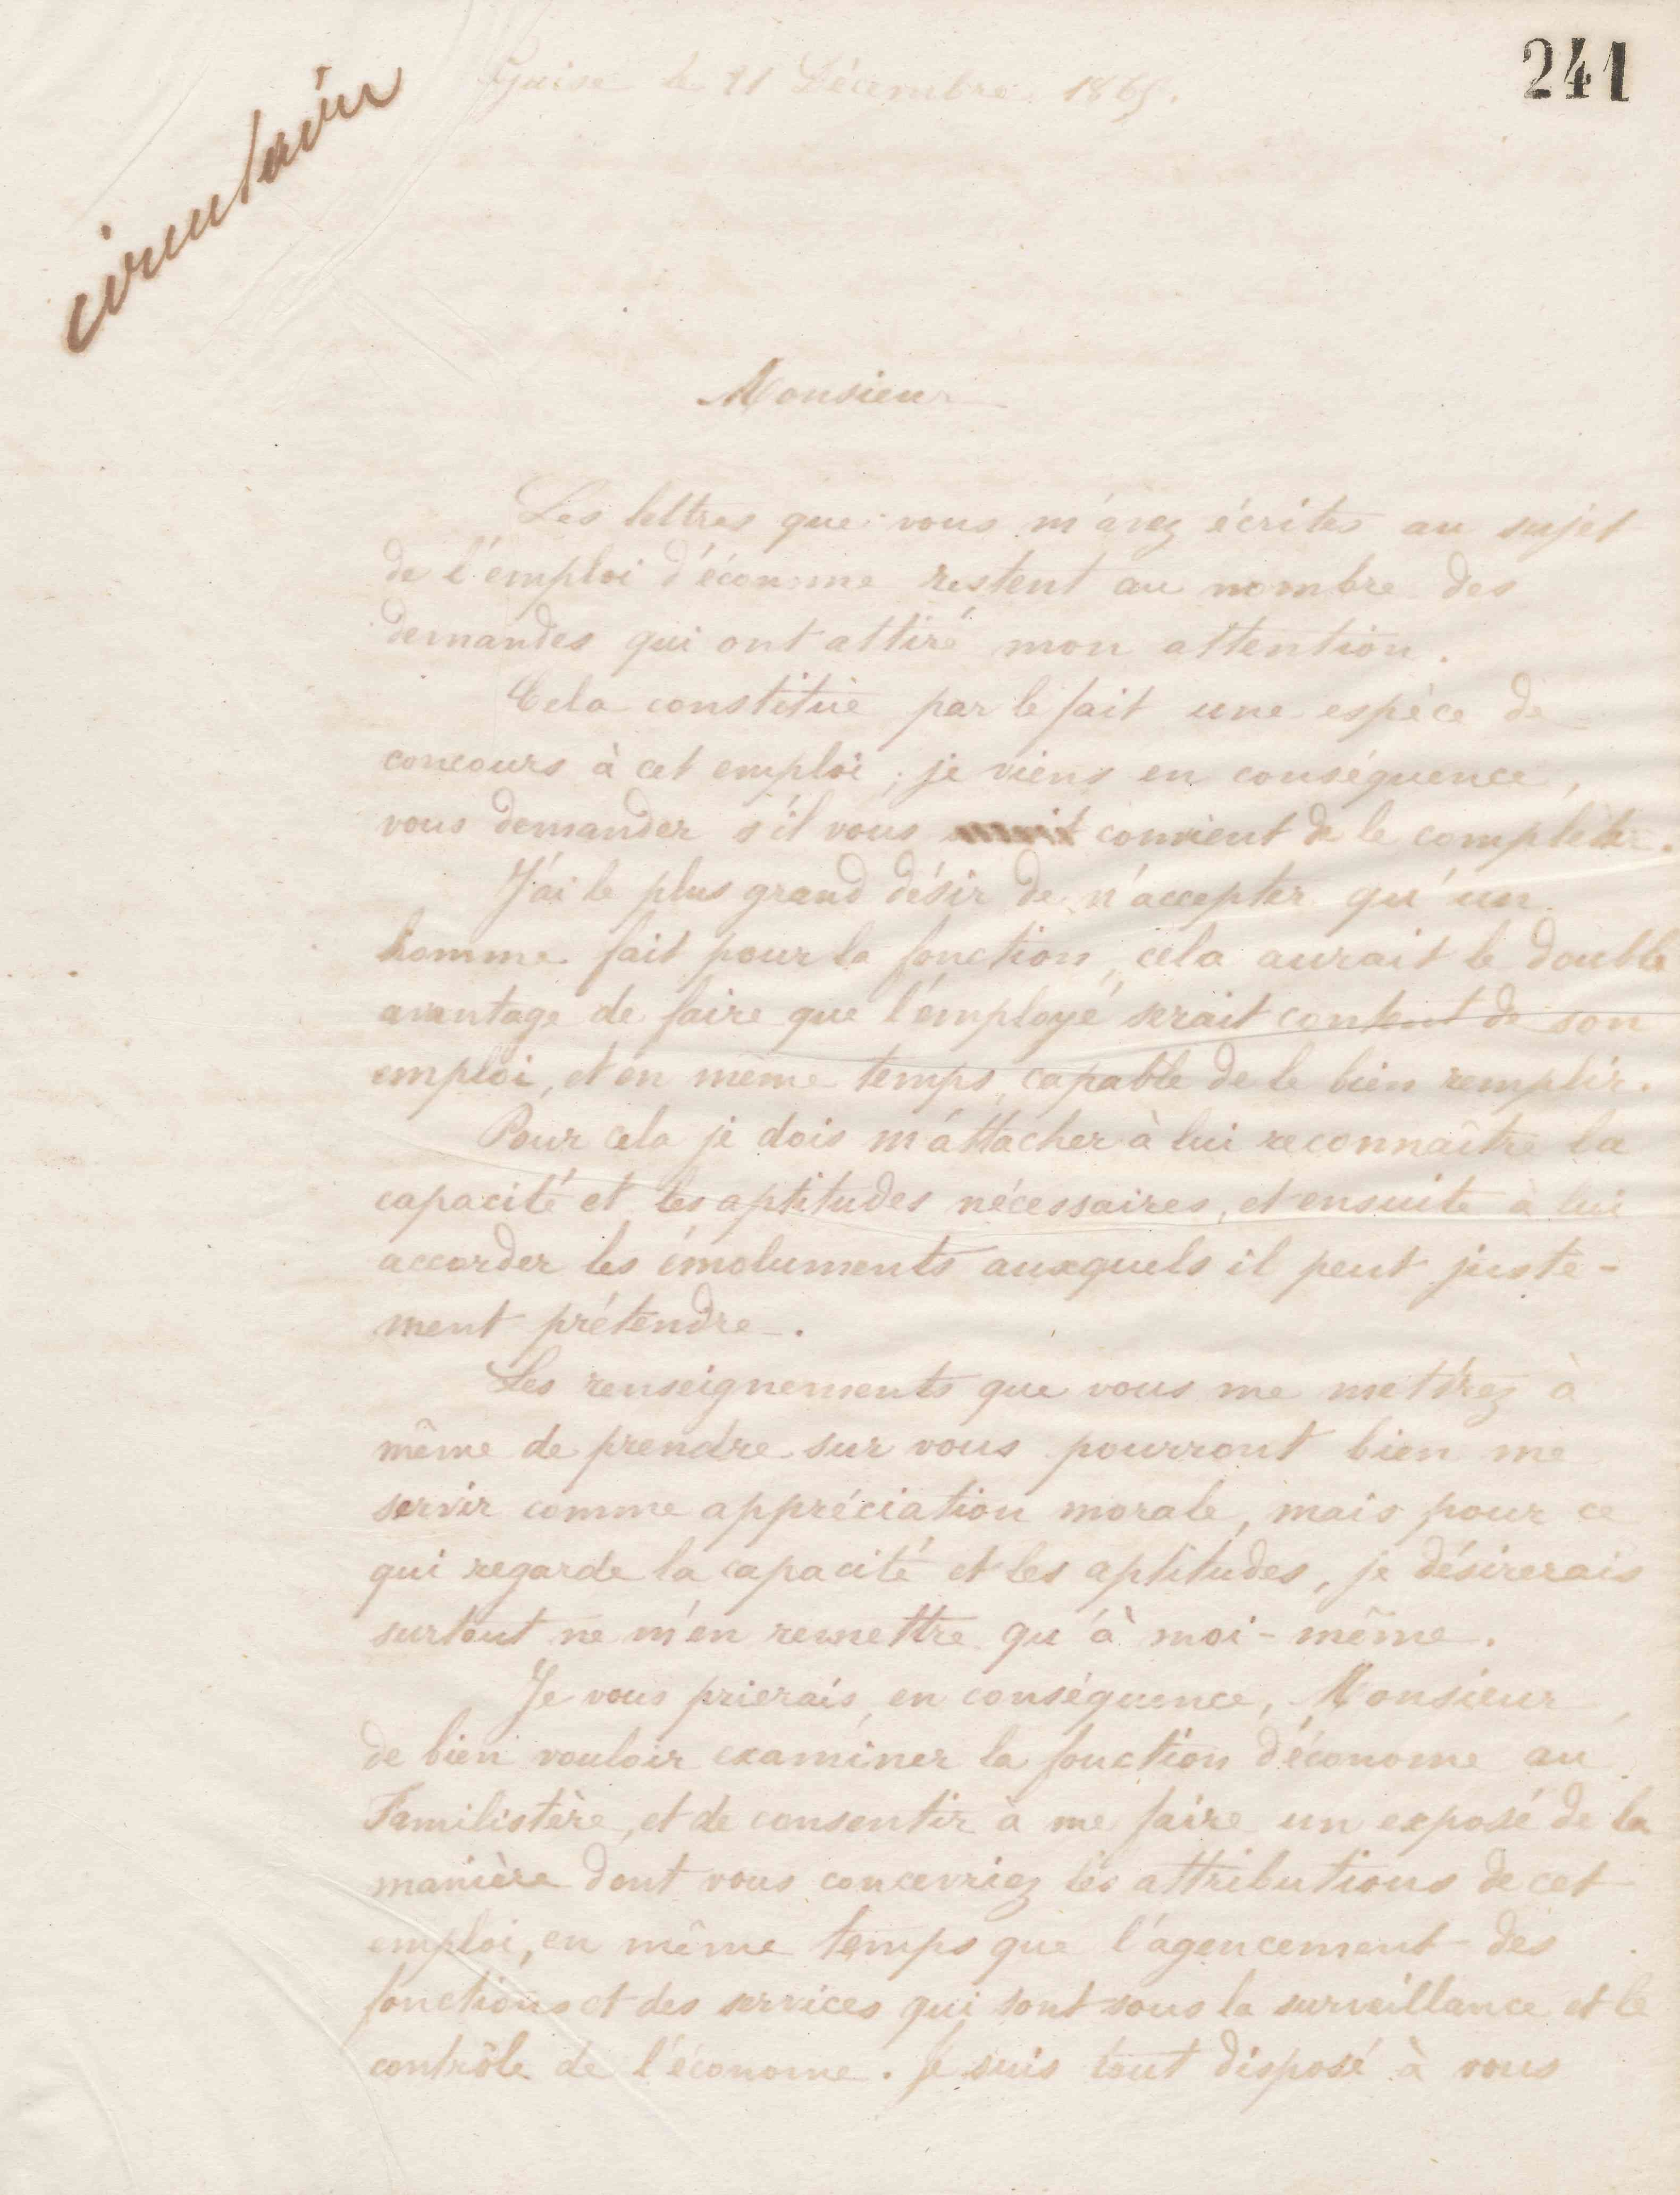 241
circulaire
Guise le 21 Décembre 1865.
Monsieur
Les lettres que vous m'avez écrites au sujet
de l'emploi d'économe restent au nombre des
demandes qui ont attiré mon attention.
Cela constitue par le fait une espèce de
concours à cet emploi ; je viens en conséquence,
vous demander s'il vous convient de le compléter.
J'ai le plus grand désir de n'accepter qu'un
homme fait pour la fonction, cela aurait le double
avantage de faire que l'employé serait content de son
emploi, et en même temps, capable de le bien remplir.
Pour cela je dois m'attacher à lui reconnaître la
capacité et les aptitudes nécessaires, et ensuite à lui
accorder les émoluments auxquels il peut juste-
ment prétendre.
Les renseignements que vous me mettrez à
même de prendre sur vous pourront bien me
servir comme appréciation morale, mais pour ce
qui regarde la capacité et les aptitudes, je désirerais
surtout ne m'en remettre qu'à moi-même.
Je vous prierais, en conséquence, Monsieur,
de bien vouloir examiner la fonction d'économe au
Familistère, et de consentir à me faire un exposé de la
manière dont vous concevriez les attributions de cet
emploi, en même temps que l'agencement des
fonctions et des services qui sont sous la surveillance et le
contrôle de l'économe. Je suis tout disposé à vous